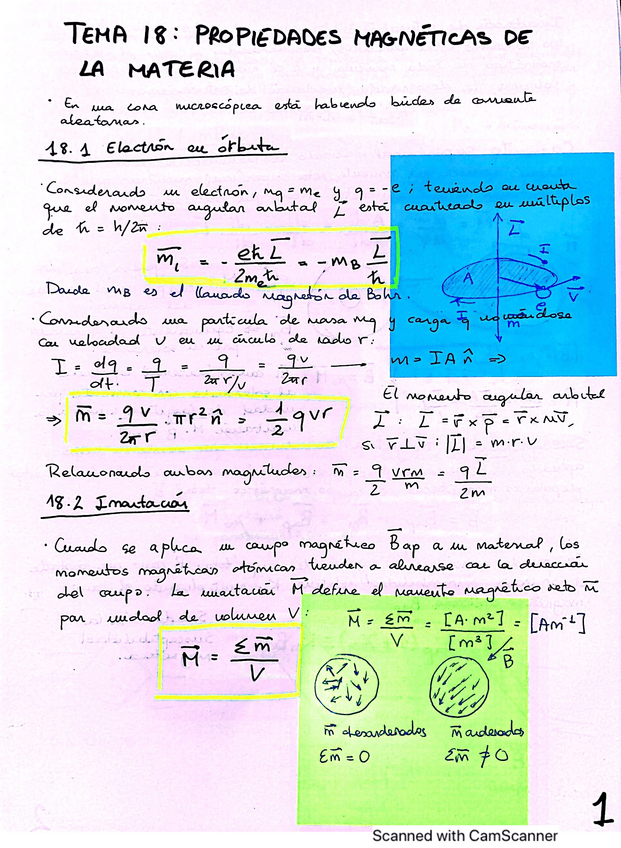 TEMA 18: PROPIEDADES MAGNÉTICAS DE
LA MATERIA
· En una cosa microscópica está habiendo bucles de corriente
aleatorias.
18.1 Electrón en órbita
· Considerando un electrón, mq = me y q = -e ; teniendo en cuenta
que el momento angular orbital L⃗ está cuantizado en múltiplos
de ħ = h/2π :
m⃗ₗ = - eħ L⃗ / 2me ħ = - mB L⃗ / ħ
Donde mB es el llamado magnetón de Bohr.
L⃗
I
A
e
v⃗
I
m⃗
· Considerando una partícula de masa mq y carga q moviéndose
con velocidad v en un círculo de radio r :
I = dq/dt = q/T = q/(2πr/v) = qv/2πr → m = I A n̂ ⇒
⇒ m⃗ = qv/2πr · πr² n̂ = 1/2 qvr
El momento angular orbital
L⃗ : L⃗ = r⃗ × p⃗ = r⃗ × mv⃗,
si r⃗ ⊥ v⃗ : |L⃗| = m·r·v
Relacionando ambas magnitudes : m⃗ = q/2 vrm/m = q L⃗/2m
18.2 Imantación
· Cuando se aplica un campo magnético B⃗ap a un material, los
momentos magnéticos atómicos tienden a alinearse con la dirección
del campo. La imantación M⃗ define el momento magnético neto m⃗
por unidad de volumen V :
M⃗ = Σm⃗/V = [A·m²]/[m³] = [Am⁻¹]
M⃗ = Σm⃗/V
B⃗
m⃗ desordenados m⃗ ordenados
Σm⃗ = 0 Σm⃗ ≠ 0
1
Scanned with CamScanner